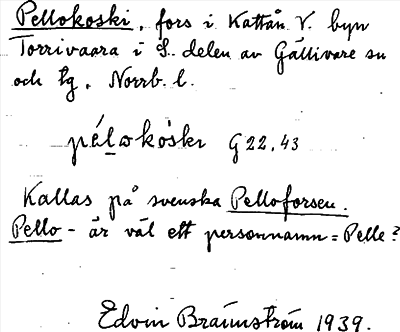 Pellokoski, fors i Kattån V. byn
Torrivaara i S. delen av Gällivare sn
och tg. Norrb. l.
pélₒkòski G22,43
Kallas på svenska Pelloforsen.
Pello - är väl ett personnamn = Pelle?
Edvin Brännström 1939.